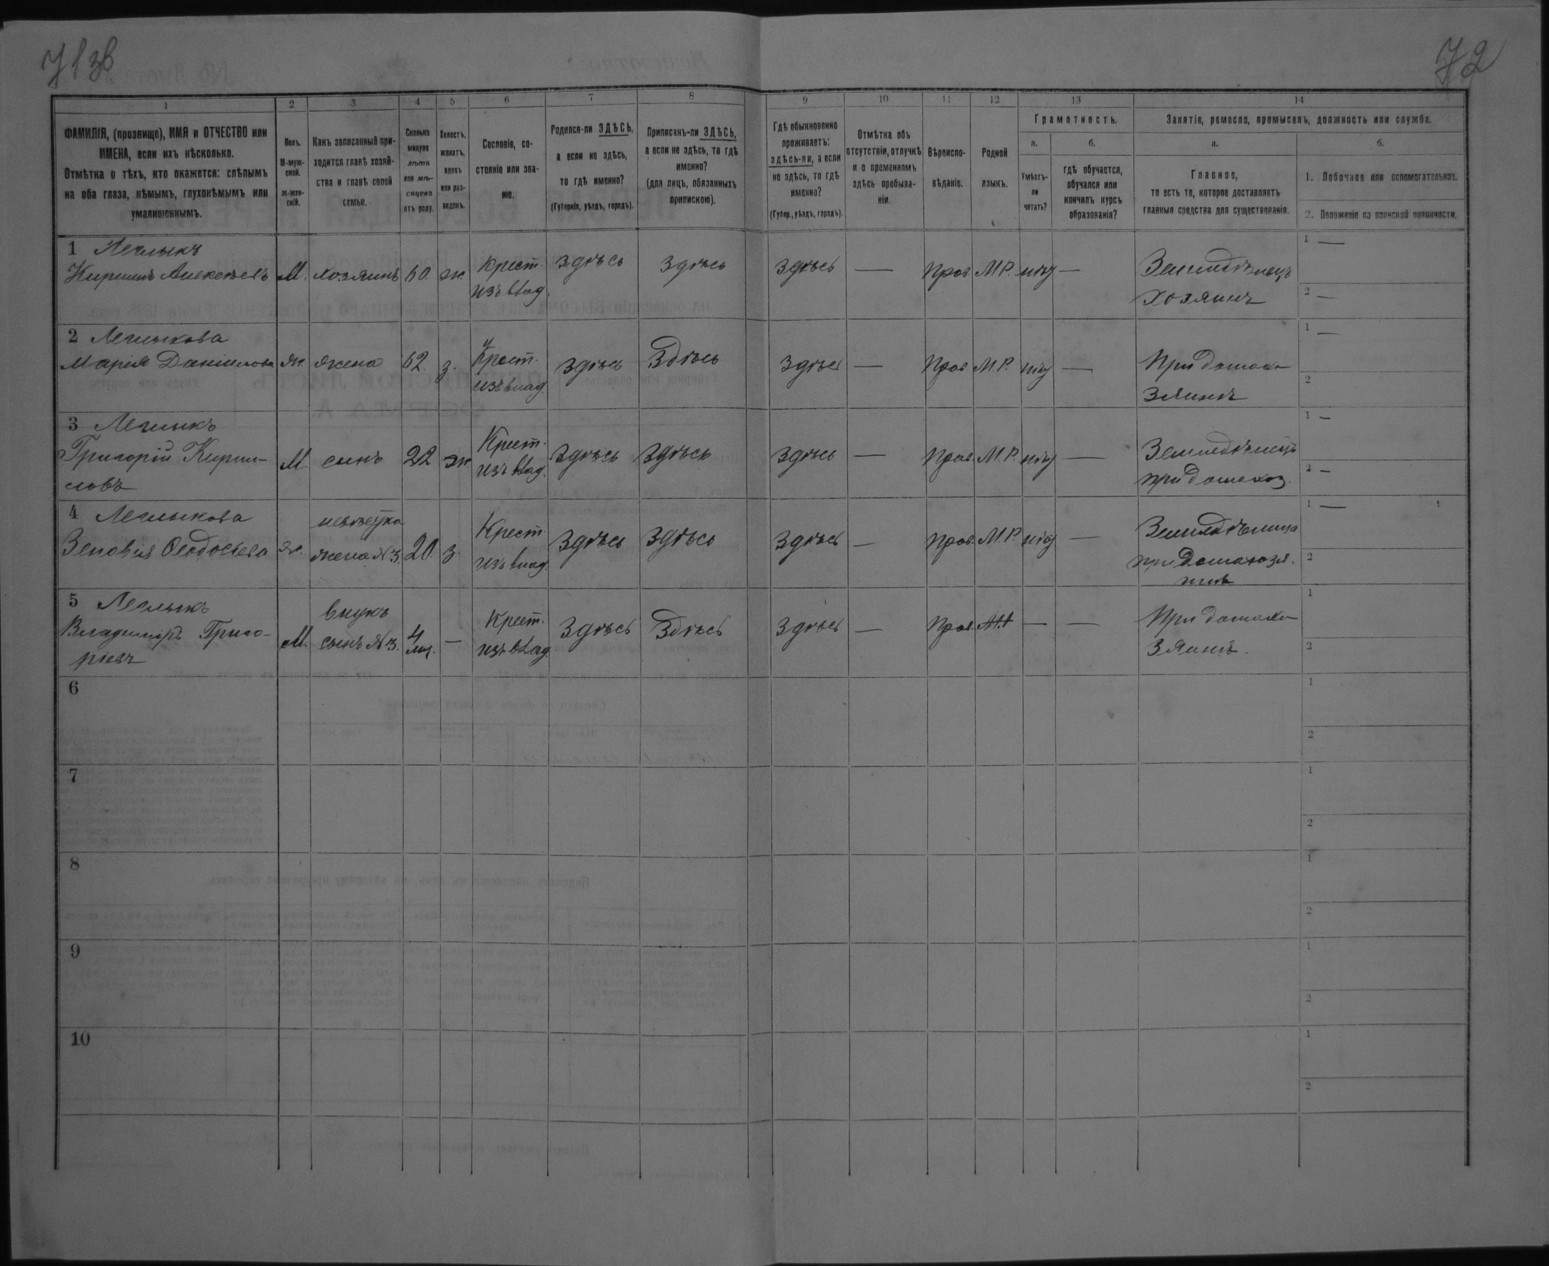 71 зв
72
1 2 3 4 5 6 7 8 9 10 11 12 13 14
ФАМИЛІЯ, (прозвище), ИМЯ и ОТЧЕСТВО или
ИМЕНА, если ихъ нѣсколько.
Отмѣтка о тѣхъ, кто окажется: слѣпымъ
на оба глаза, нѣмымъ, глухонѣмымъ или
умалишеннымъ.
Полъ.
М-муж-
ской.
ж-жен-
скій.
Какъ записанный при-
ходится главѣ хозяй-
ства и главѣ своей
семьи.
Сколько
минуло
лѣтъ
или мѣ-
сяцевъ
отъ роду.
Холостъ,
женатъ,
вдовъ
или раз-
веденъ.
Сословіе, со-
стояніе или зва-
ніе.
Родился-ли ЗДѢСЬ,
а если не здѣсь,
то гдѣ именно?
(Губернія, уѣздъ, городъ).
Приписанъ-ли ЗДѢСЬ,
а если не здѣсь, то гдѣ
именно?
(для лицъ, обязанныхъ
припискою).
Гдѣ обыкновенно
проживаетъ:
здѣсь-ли, а если
не здѣсь, то гдѣ
именно?
(Губер., уѣздъ, городъ).
Отмѣтка объ
отсутствіи, отлучкѣ
и о временномъ
здѣсь пребыва-
ніи.
Вѣроиспо-
вѣданіе.
Родной
языкъ.
Грамотность.
а.
Умѣетъ-
ли
читать?
б.
Гдѣ обучается,
обучался или
кончилъ курсъ
образованія?
Занятіе, ремесло, промыселъ, должность или служба.
а.
Главное,
то есть то, которое доставляетъ
главныя средства для существованія.
б.
1. Побочное или вспомогательное.
2. Положеніе по воинской повинности.
1
Кирилъ Алексѣевъ М. хозяинъ 60. ж Крест. изъ влад. здѣсь здѣсь здѣсь — Прав М.Р. нѣт — Земледѣлецъ
хозяинъ
1 —
2 —
2
Марія Даніилова ж жена 62 з. Крест. изъ влад. здѣсь здѣсь здѣсь — Прав М.Р. нѣт — При домохо-
зяинѣ
1 —
2
3
Григорій Кирил-
ловъ М. сынъ 22 ж Крест. изъ влад. здѣсь здѣсь здѣсь — Прав М.Р. нѣт — Земледѣлецъ
при домохоз.
1 —
2 —
4
Зеновія Ѳеодосіева ж. невѣстка
жена №3. 20 з. Крест изъ влад здѣсь здѣсь здѣсь — Прав М.Р. нѣт — Земледѣлица
при домохозя-
инѣ
1 —
2
5
Владиміръ Григо-
ріевъ М. внукъ
сынъ №3. 4
мѣс. — Крест. изъ влад здѣсь здѣсь здѣсь — Прав — — При домохо-
зяинѣ.
1
2
6
1
2
7
1
2
8
1
2
9
1
2
10
1
2